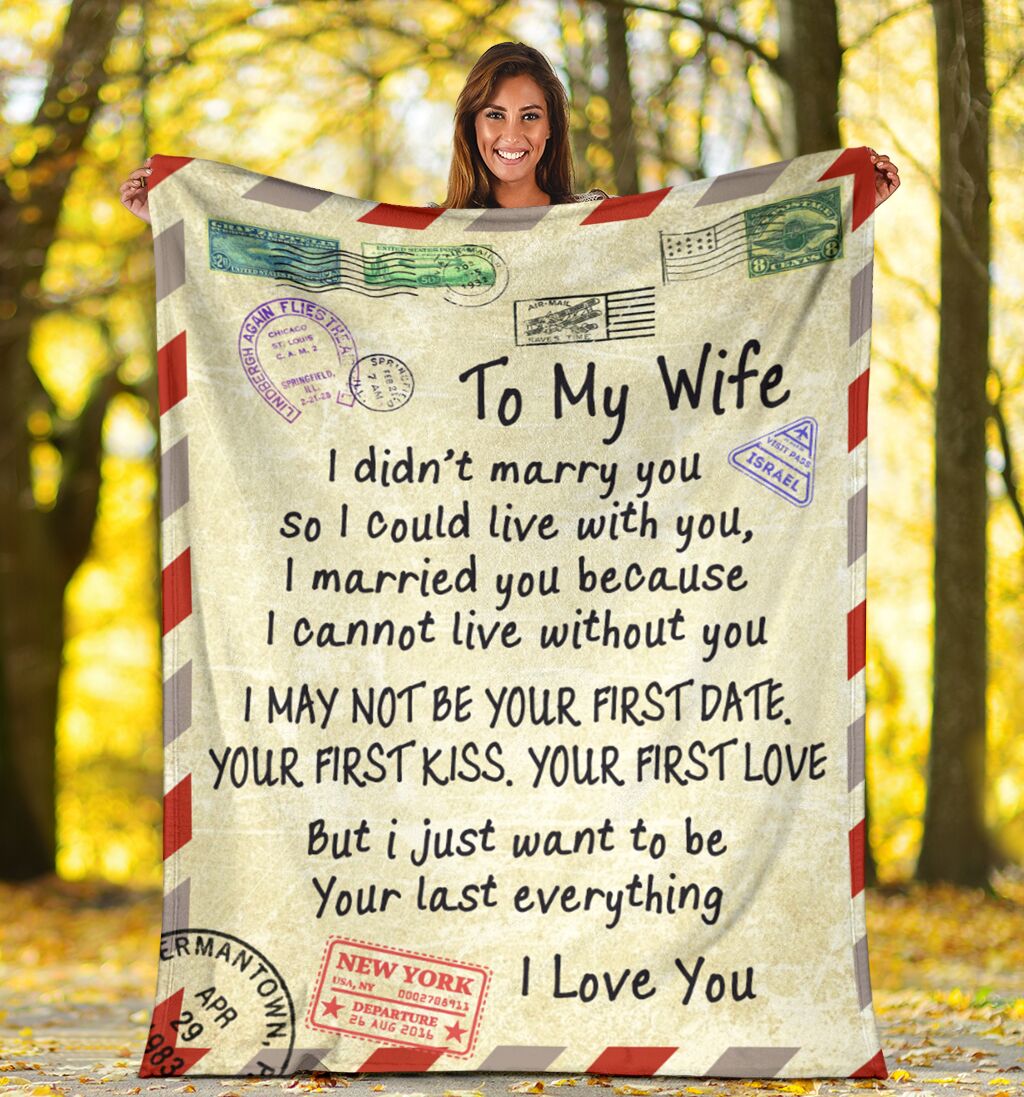 GRAF ZEPPELIN
UNITED STATES POSTAGE
AIR-MAIL
SAVES TIME
8 CENTS 8
LINDBERGH AGAIN FLIES THE AIR
CHICAGO
ST. LOUIS
C. A. M. 2
SPRINGFIELD,
ILL.
2-21-28
SPRINGFIELD
FEB 2
7 AM
To My Wife
VISIT PASS
ISRAEL
I didn't marry you
so I could live with you,
I married you because
I cannot live without you
I MAY NOT BE YOUR FIRST DATE.
YOUR FIRST KISS. YOUR FIRST LOVE
But i just want to be
Your last everything
I Love You
ERMANTOWN,
APR
29
1983
NEW YORK
USA, NY
0002708911
DEPARTURE
26 AUG 2036